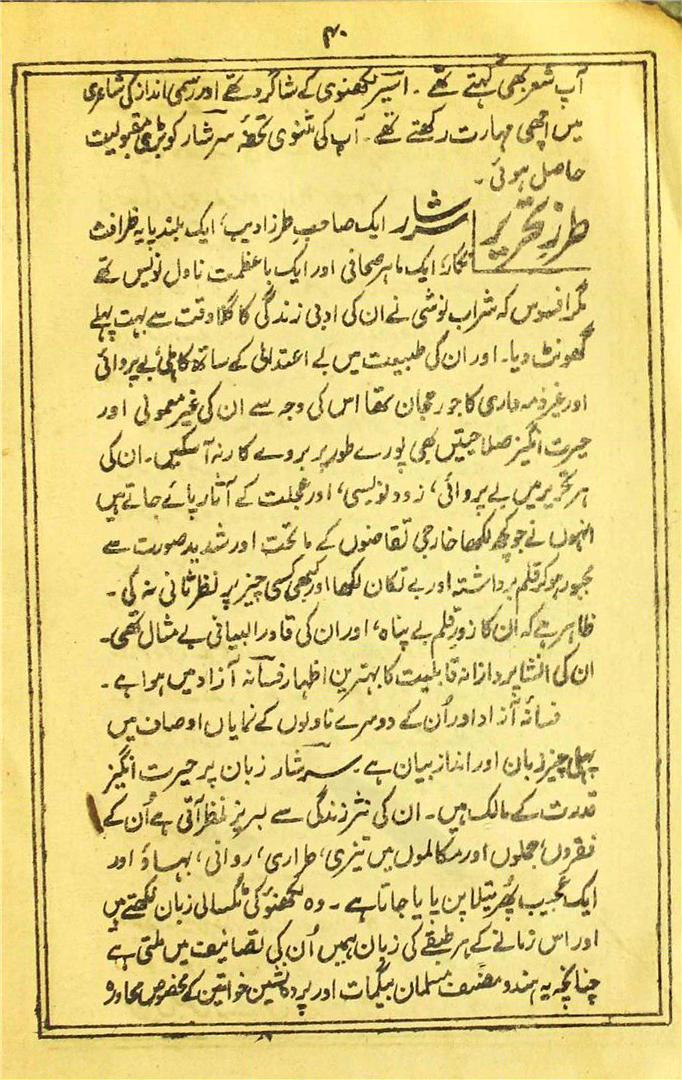 ۴۰
آپ شعر بھی کہتے تھے ۔ اسیر لکھنوی کے شاگرد تھے اور رسمی انداز کی شاعری
میں اچھی مہارت رکھتے تھے ۔ آپ کی مثنوی تحفۂ سرشار کو بڑی مقبولیت
حاصل ہوئی ۔
طرز تحریر
سرشار ایک صاحبِ طرز ادیب، ایک بلند پایہ ظرافت
نگار، ایک ماہر صحافی اور ایک باعظمت ناول نویس تھے
مگر افسوس کہ شراب نوشی نے ان کی ادبی زندگی کا گلا وقت سے بہت پہلے
گھونٹ دیا ۔ اور ان کی طبیعت میں بے اعتدالی کے ساتھ کاہلی، بے پروائی
اور غیر ذمہ داری کا جو رحجان تھا اس کی وجہ سے ان کی غیر معمولی اور
حیرت انگیز صلاحیتیں بھی پورے طور پر بروے کار نہ آ سکیں ۔ ان کی
ہر تحریر میں بے پروائی، زود نویسی، اور عجلت کے آثار پائے جاتے ہیں
انہوں نے جو کچھ لکھا خارجی تقاضوں کے ماتحت اور شدید صورت سے
مجبور ہو کر قلم برداشتہ اور بے تکان لکھا اور کبھی کسی چیز پر نظر ثانی نہ کی ۔
ظاہر ہے کہ ان کا زورِ قلم بے پناہ، اور ان کی قادر البیانی بے مثال تھی ۔
ان کی انشا پردازانہ قابلیت کا بہترین اظہار فسانہ آزاد میں ہوا ہے ۔
فسانۂ آزاد اور اُن کے دوسرے ناولوں کے نمایاں اوصاف میں
پہلی چیز زبان اور انداز بیان ہے ۔ سرشار زبان پر حیرت انگیز
قدرت کے مالک ہیں ۔ ان کی نثر زندگی سے لبریز نظر آتی ہے اُن کے
فقروں، جملوں اور مکالموں میں تیزی، طراری، روانی، بہاؤ اور
ایک عجیب پھرتیلا پن پایا جاتا ہے ۔ وہ لکھنؤ کی ٹکسالی زبان لکھتے ہیں
اور اس زمانے کے ہر طبقے کی زبان ہمیں اُن کی تصانیف میں ملتی ہے
چنانچہ یہ ہندو مصنف مسلمان بیگمات اور پردہ نشین خواتین کے مخصوص محاورو